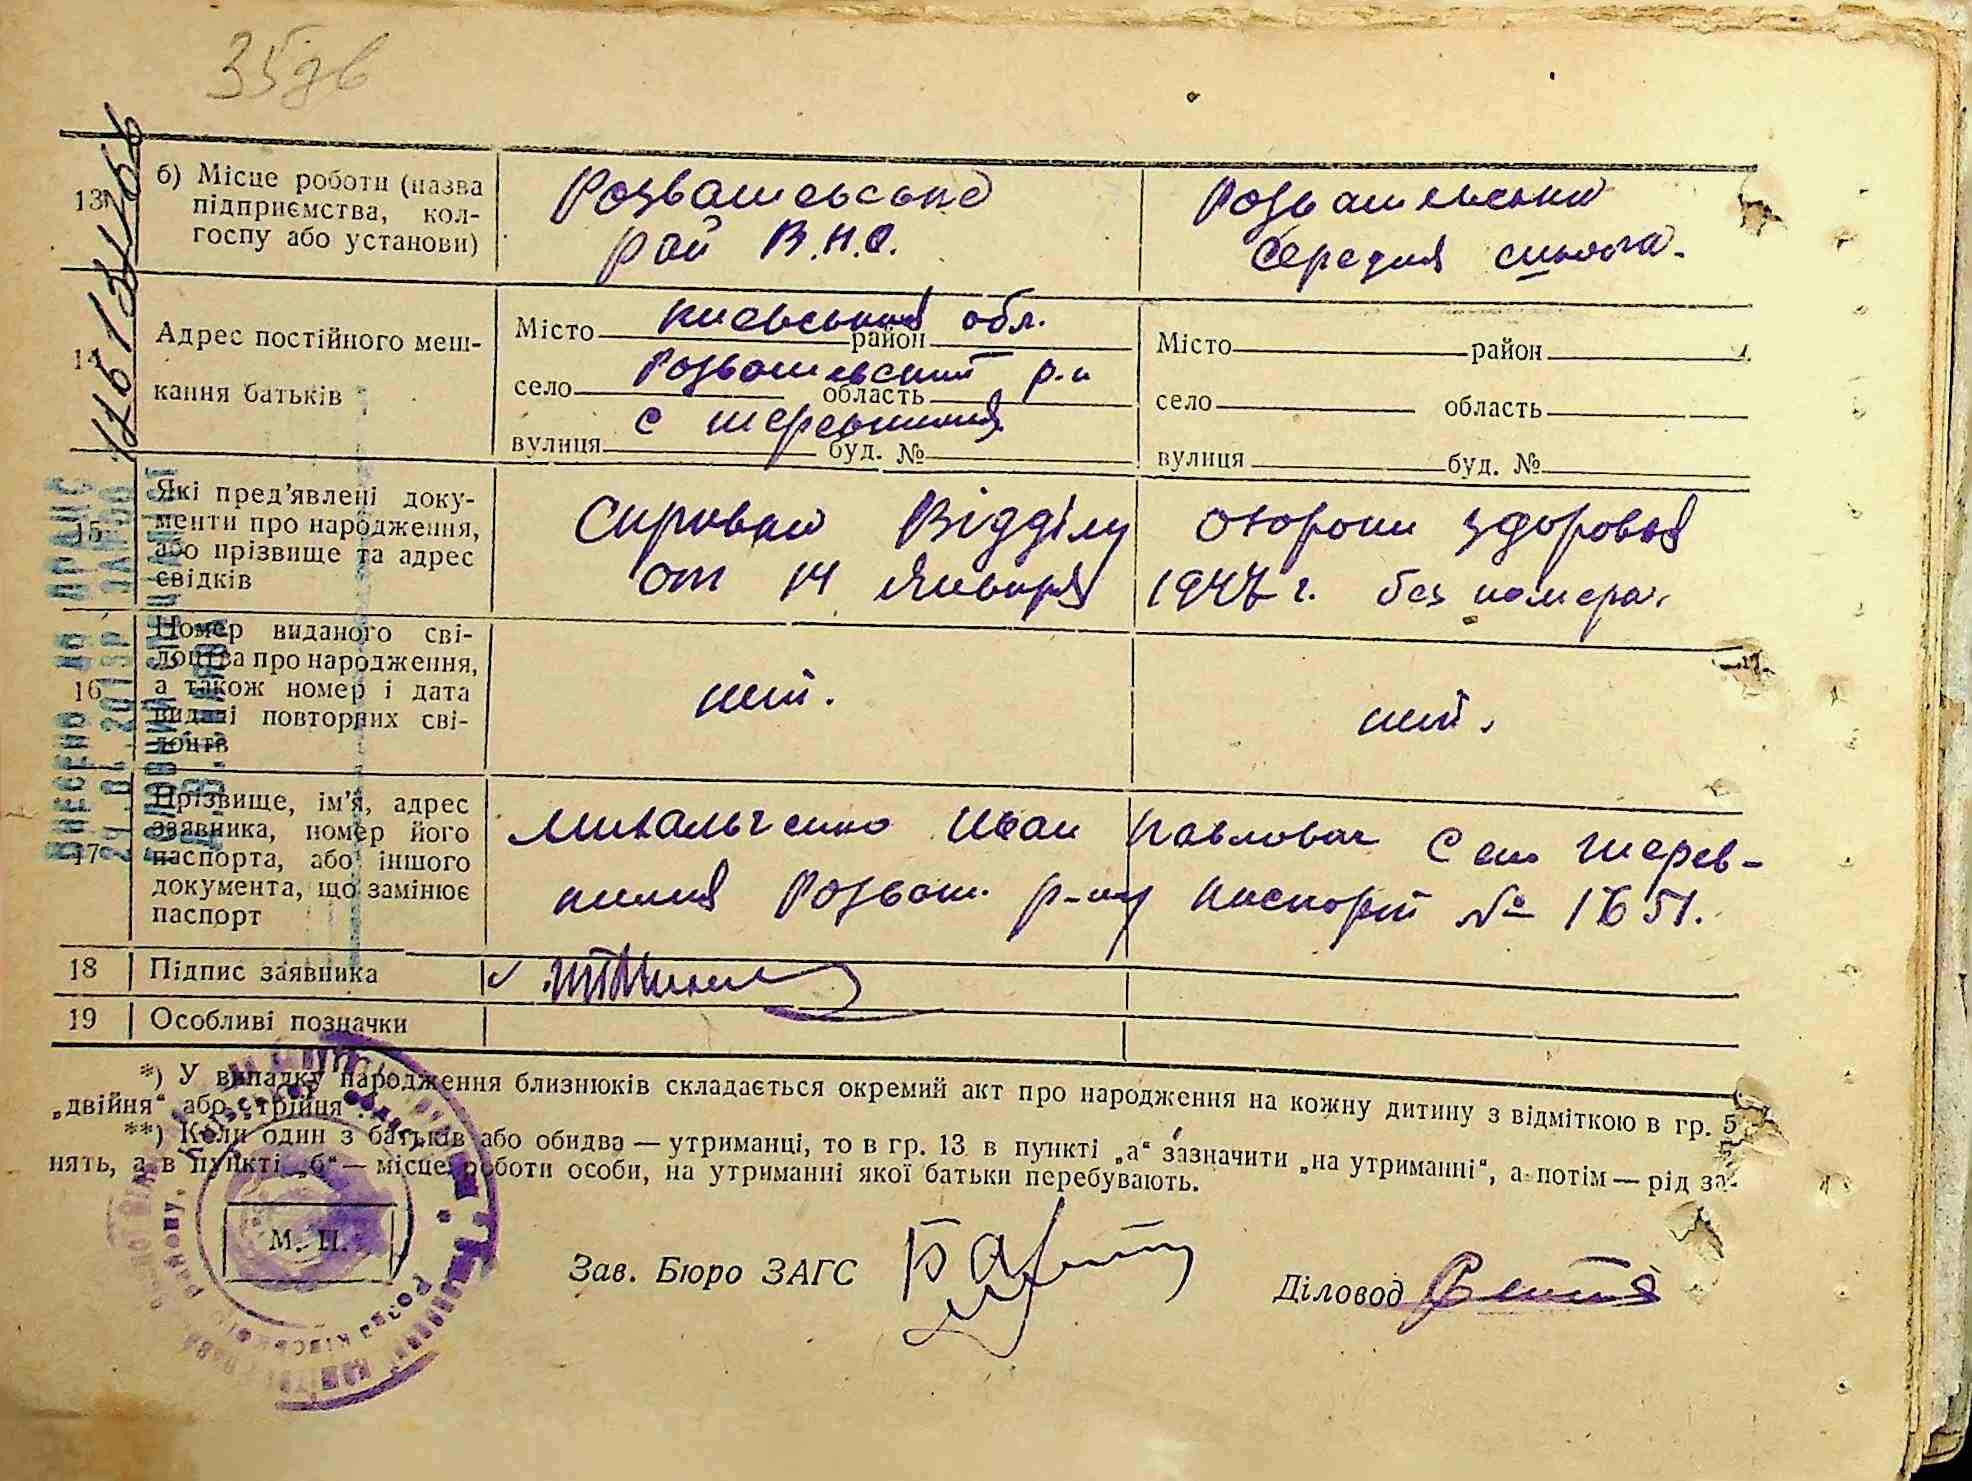 35 зв
13 б) Місце роботи (назва підприємства, колгоспу або установи)
Розважевське
рай В.Н.О.
Розважевська
середня школа.
14 Адрес постійного мешкання батьків
Місто Киевськая обл. район
село Розважевский р-н область
вулиця с шеревпилля буд. №
Місто район
село область
вулиця буд. №
15 Які пред'явлені документи про народження, або прізвище та адрес свідків
Справка Відділу охорони здоровья
от 14 Января 1947 г. без номера.
16 Номер виданого свідоцтва про народження, а також номер і дата видачі повторних свідоцтв
ній.
ній.
17 Прізвище, ім'я, адрес заявника, номер його паспорта, або іншого документа, що замінює паспорт
Михальченко Иван Павлович Село шерев-
пилля Розваж. р-ну паспорт № 1651.
18 Підпис заявника
19 Особливі позначки
*) У випадку народження близнюків складається окремий акт про народження на кожну дитину з відміткою в гр. 5
„двійня“ або „трійця“.
**) Коли один з батьків або обидва — утриманці, то в гр. 13 в пункті „а“ зазначити „на утриманні“, а потім — рід за-
нять, а в пункті „б“ — місце роботи особи, на утриманні якої батьки перебувають.
М. П.
Зав. Бюро ЗАГС
Діловод
Внесено до ДРАЦС